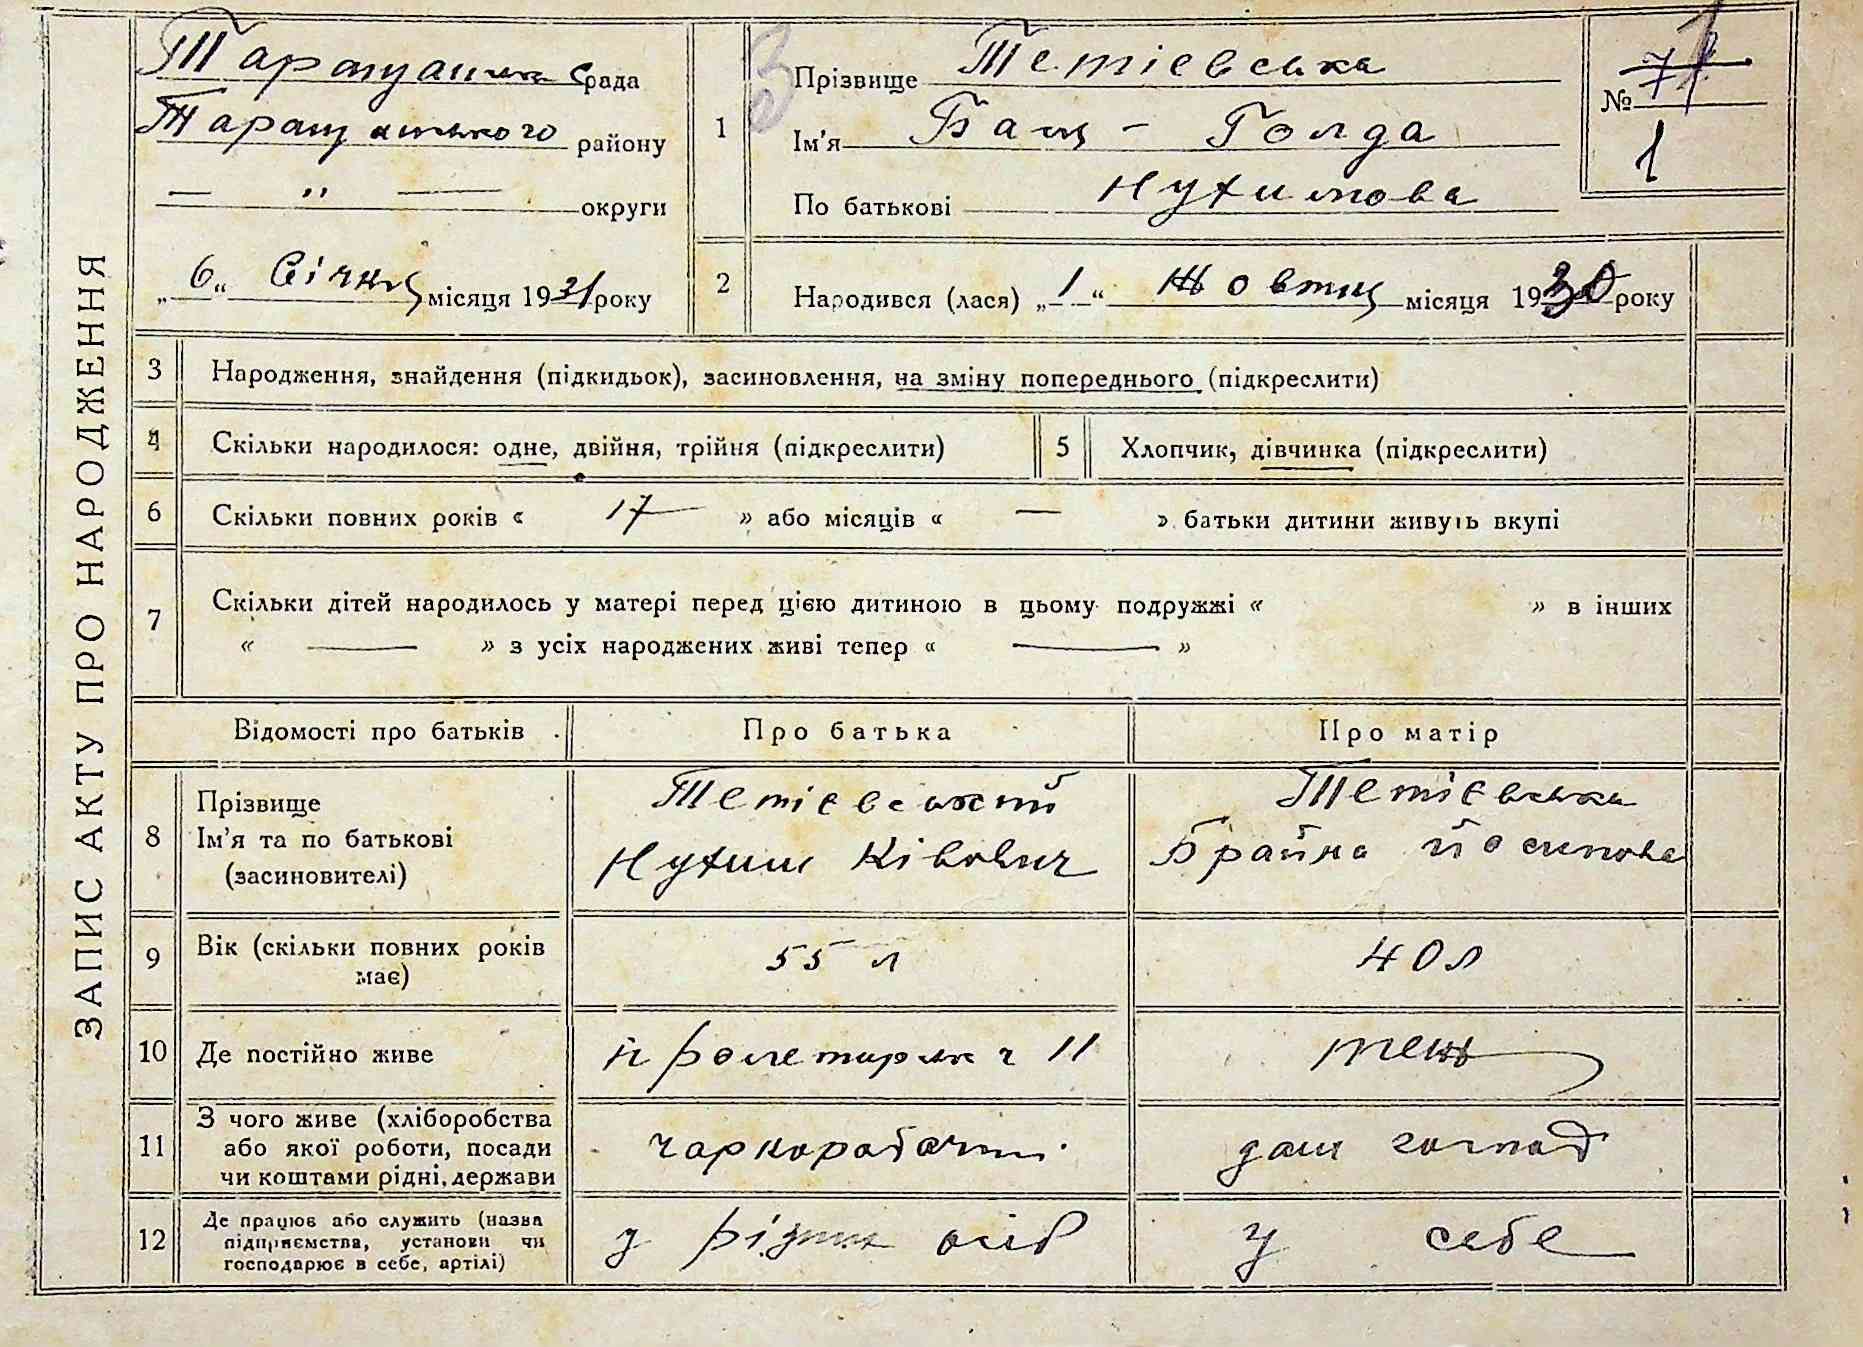 ЗАПИС АКТУ ПРО НАРОДЖЕННЯ
Таращанська рада
Таращанського району
— " — округи
„6“ Січня місяця 1931 року
1
Прізвище Тетієвська
Ім'я Бащ - Голда
По батькові Нухимова
№ 71
1
2
Народився (лася) „1“ Жовтня місяця 1930 року
3 Народження, знайдення (підкидьок), засиновлення, на зміну попереднього (підкреслити)
4 Скільки народилося: одне, двійня, трійня (підкреслити)
5 Хлопчик, дівчинка (підкреслити)
6 Скільки повних років « 17 » або місяців « — » батьки дитини живуть вкупі
7 Скільки дітей народилось у матері перед цією дитиною в цьому подружжі « » в інших
« — » з усіх народжених живі тепер « — »
Відомості про батьків Про батька Про матір
8 Прізвище
Ім'я та по батькові
(засиновителі)
Тетієвський
Нухим Ківович
Тетієвська
Брайна Йосипова
9 Вік (скільки повних років
має)
55 л
40 л
10 Де постійно живе
11
11 З чого живе (хліборобства
або якої роботи, посади
чи коштами рідні, держави
чорноробочий
дом господ
12 Де працює або служить (назва
підприємства, установи чи
господарює в себе, артілі)
у різних осіб
у себе